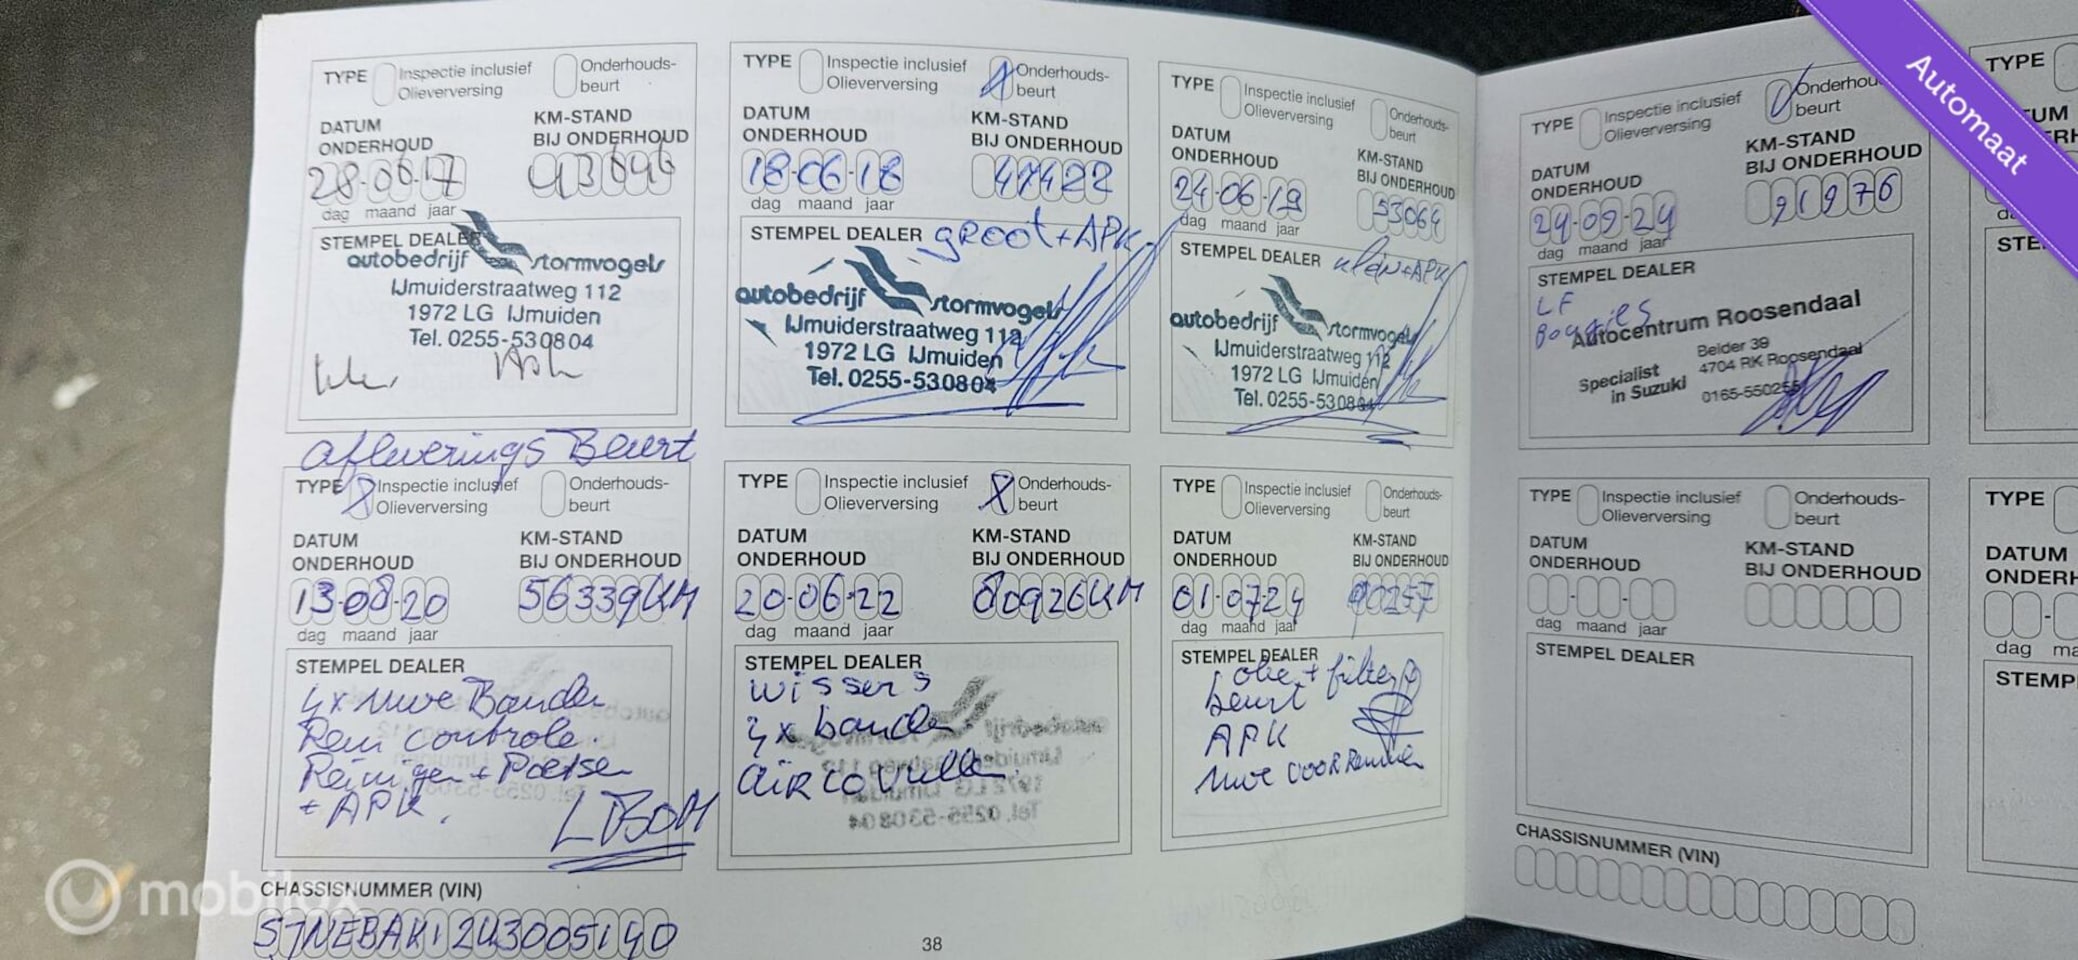 TYPE Inspectie inclusief Onderhouds-
Olieverversing beurt
DATUM KM-STAND
ONDERHOUD BIJ ONDERHOUD
28-06-17
dag maand jaar
STEMPEL DEALER
autobedrijf stormvogels
IJmuiderstraatweg 112
1972 LG IJmuiden
Tel. 0255-530804
TYPE Inspectie inclusief Onderhouds-
Olieverversing beurt
DATUM KM-STAND
ONDERHOUD BIJ ONDERHOUD
18-06-18 47422
dag maand jaar
STEMPEL DEALER groot + APK
autobedrijf stormvogels
IJmuiderstraatweg 112
1972 LG IJmuiden
Tel. 0255-530804
TYPE Inspectie inclusief Onderhouds-
Olieverversing beurt
DATUM KM-STAND
ONDERHOUD BIJ ONDERHOUD
24-06-19 53064
dag maand jaar
STEMPEL DEALER klein + APK
autobedrijf stormvogels
IJmuiderstraatweg 112
1972 LG IJmuiden
Tel. 0255-530804
afleverings Beurt
TYPE X Inspectie inclusief Onderhouds-
Olieverversing beurt
DATUM KM-STAND
ONDERHOUD BIJ ONDERHOUD
13-08-20 56339KM
dag maand jaar
STEMPEL DEALER
4x nwe Banden
Rem controle.
Reinigen + Poetsen
+ APK.
TYPE Inspectie inclusief X Onderhouds-
Olieverversing beurt
DATUM KM-STAND
ONDERHOUD BIJ ONDERHOUD
20-06-22 80926KM
dag maand jaar
STEMPEL DEALER
wissers
4x banden
airco vullen
TYPE Inspectie inclusief Onderhouds-
Olieverversing beurt
DATUM KM-STAND
ONDERHOUD BIJ ONDERHOUD
01-07-24 90257
dag maand jaar
STEMPEL DEALER
olie + filter
beurt
APK
nwe voorremmen
CHASSISNUMMER (VIN)
38
TYPE Inspectie inclusief Onderhouds-
Olieverversing beurt
DATUM KM-STAND
ONDERHOUD BIJ ONDERHOUD
24-09-24 91976
dag maand jaar
STEMPEL DEALER
LF
Bougies
Autocentrum Roosendaal
Specialist Belder 39
in Suzuki 4704 RK Roosendaal
0165-550255
TYPE Inspectie inclusief Onderhouds-
Olieverversing beurt
DATUM KM-STAND
ONDERHOUD BIJ ONDERHOUD
dag maand jaar
STEMPEL DEALER
CHASSISNUMMER (VIN)
TYPE
TYPE
DATUM
STEMP
Automaat
mobilux